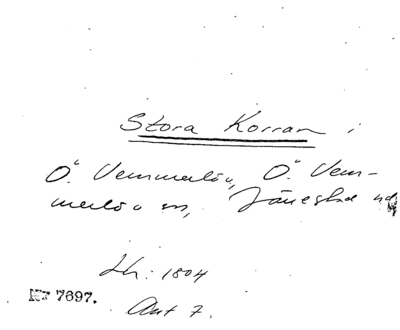 Stora Korran i
Ö. Vemmerlöv, Ö. Vem-
merlöv sn, Järrestad hd
Lh: 1804
NT 7697.
Ant 7.